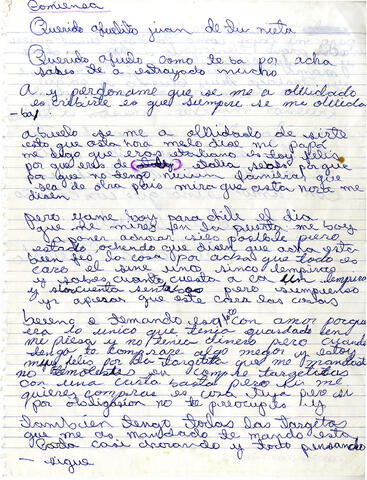 Comiensa
Querido Abuelito juan de tu nieta
Querido Afuelo como te ba por acha
sabes te a estrayado mucho
A y perdoname que se me a ollidado
escribirte es que siempre se me ollida
-ba
abuelo se me a ollidado de sirte
esto que asta nora melo dise mi papá
me digo que eras etaliano estoy felis
por que eres de italia sabes porque
por que no tengo ni un familiar que
sea de otro pais mira que asta norte me
disen
pero yame boy para chile el dia
que me mires en la puerta me boy
a poner adorar sies posible pero
estado ollendo que disen que acha esta
bien feo la cosa por acha que todo es
caro el sine uno sinco lempiras
y sabes cuanto cuesta a cor un lempira
y sincuenta sentabos pero sumpuesto
y apesar que este chas las cosas
bueno e temando esto con amor porque
eso lo unico que tenia guardado en
mi piesa y no tenia dinero pero cuando
tengo te comprare algo mejor y estoy
muy felis por la targetita que me mandastes
no temolestes en compra targetitas
con una carta basta pero si me
quieres comprar es cosa tuya pero si
por obligasion no te preocupes y
tambien tengo todas las targetas
que me as mandado te mando esta
carta casi chorando y todo pensando
- sigue